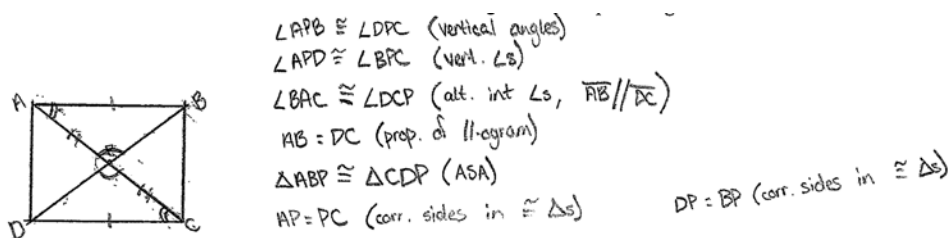 ∠APB ≅ ∠DPC (vertical angles)
∠APD ≅ ∠BPC (vert. ∠s)
∠BAC ≅ ∠DCP (alt. int ∠s, AB // DC)
AB = DC (prop. of //-ogram)
△ABP ≅ △CDP (ASA)
AP = PC (corr. sides in ≅ △s)
DP = BP (corr. sides in ≅ △s)
A
B
D
C